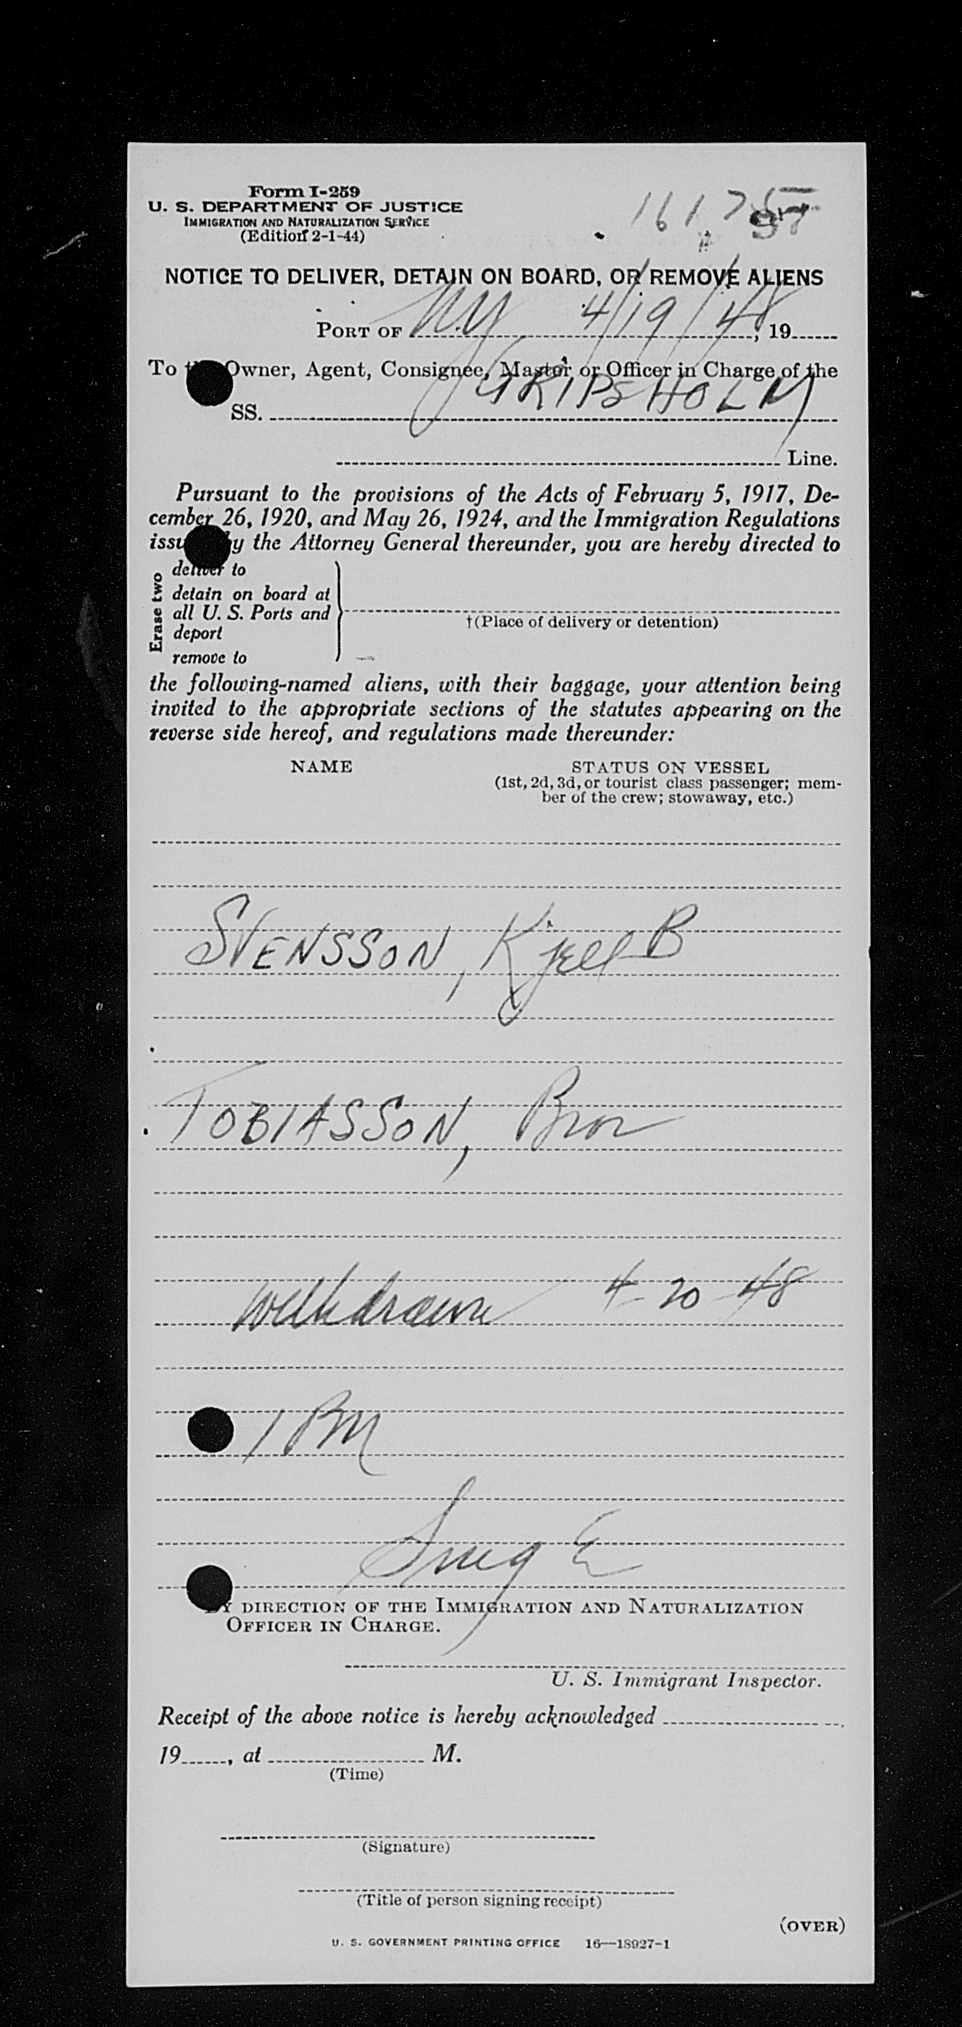 Form I-259
U. S. DEPARTMENT OF JUSTICE
IMMIGRATION AND NATURALIZATION SERVICE
(Edition 2-1-44)
NOTICE TO DELIVER, DETAIN ON BOARD, OR REMOVE ALIENS
PORT OF NY 4/19/48, 19
To the Owner, Agent, Consignee, Master or Officer in Charge of the
SS. GRIPSHOLM
Line.
Pursuant to the provisions of the Acts of February 5, 1917, De-
cember 26, 1920, and May 26, 1924, and the Immigration Regulations
issued by the Attorney General thereunder, you are hereby directed to
Erase two
deliver to
detain on board at
all U. S. Ports and
deport
remove to
†(Place of delivery or detention)
the following-named aliens, with their baggage, your attention being
invited to the appropriate sections of the statutes appearing on the
reverse side hereof, and regulations made thereunder:
NAME STATUS ON VESSEL
(1st, 2d, 3d, or tourist class passenger; mem-
ber of the crew; stowaway, etc.)
SVENSSON, Kjell B
TOBIASSON, Bror
Withdrawn 4-20-48
1 PM
BY DIRECTION OF THE IMMIGRATION AND NATURALIZATION
OFFICER IN CHARGE.
U. S. Immigrant Inspector.
Receipt of the above notice is hereby acknowledged
19, at M.
(Time)
(Signature)
(Title of person signing receipt)
(OVER)
U. S. GOVERNMENT PRINTING OFFICE 16—18927-1